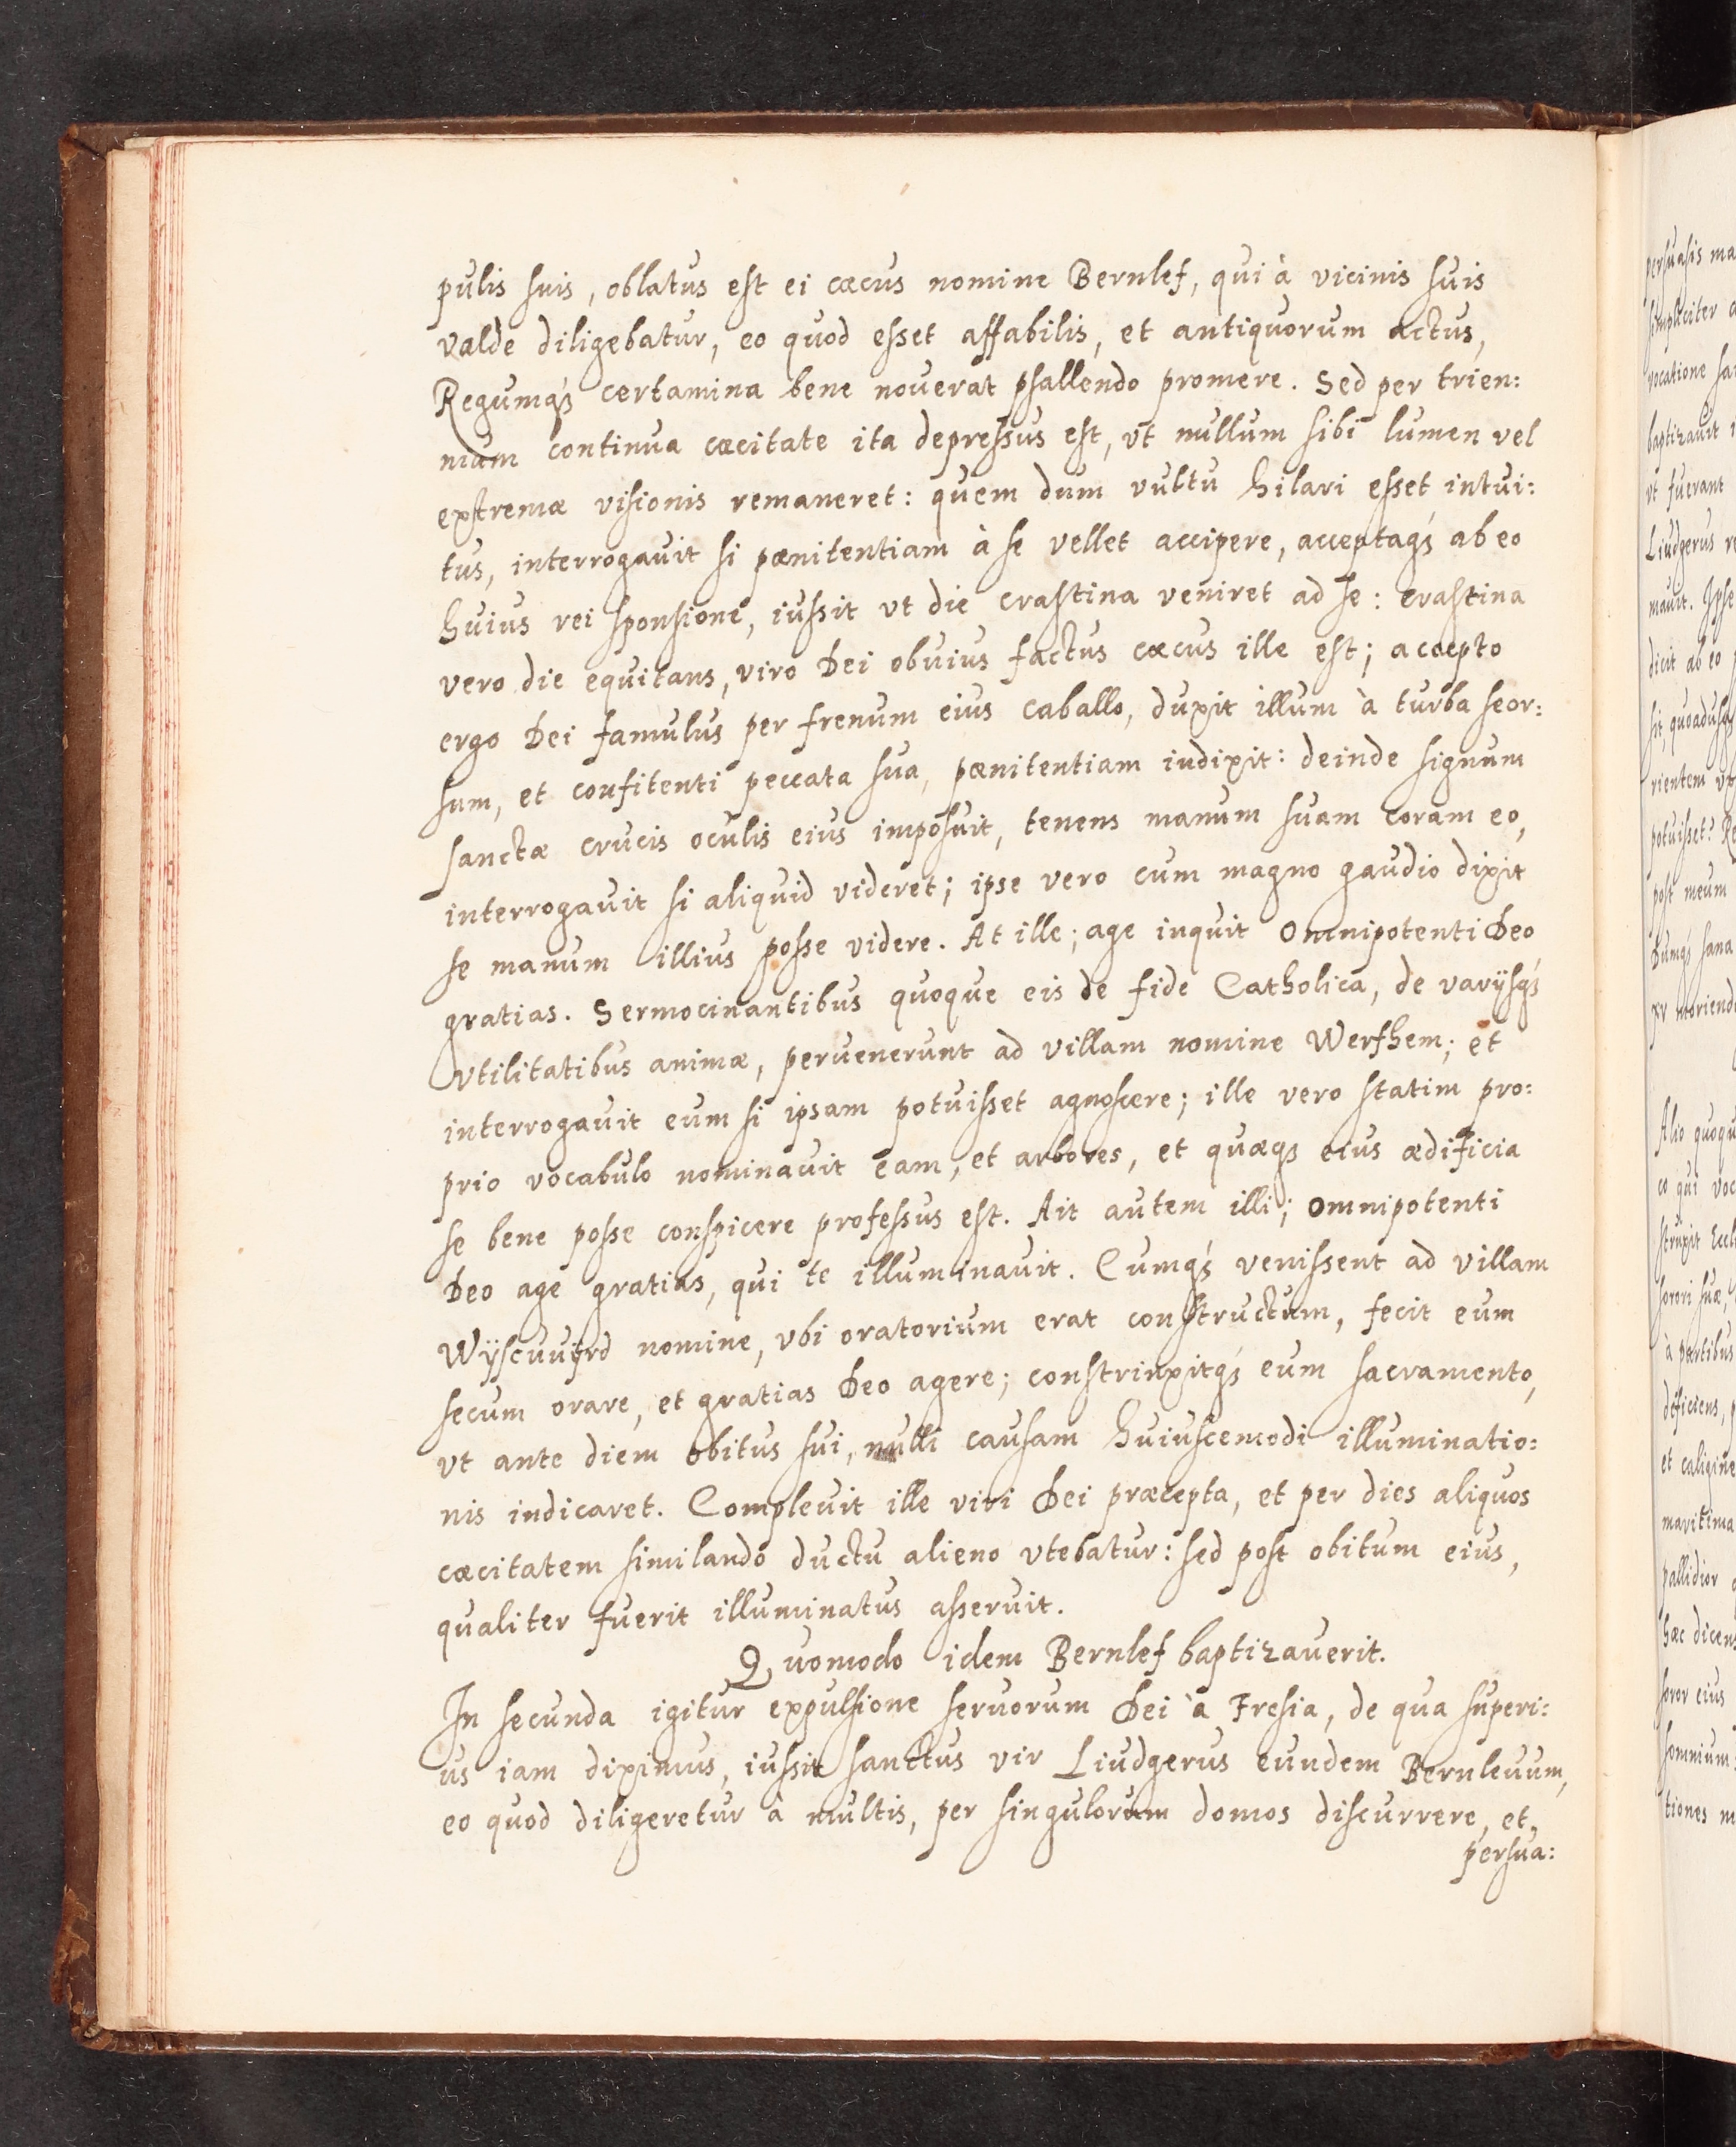 pulis suis, oblatus est ei cæcus nomine Bernlef, qui à vicinis suis
valde diligebatur, eo quod esset affabilis, et antiquorum actus,
Regumq́ꝫ certamina bene nouerat psallendo promere. Sed per trien:
nium continua cæcitate ita depressus est, vt nullum sibi lumen vel
extremæ visionis remaneret: quem dum vultu hilari esset intui:
tus, interrogauit si pænitentiam à se vellet accipere, acceptaq́ꝫ ab eo
huius rei sponsione, iussit vt die crastina veniret ad se: crastina
vero die equitans, viro Dei obuius factus cæcus ille est; accepto
ergo Dei famulus per frenum eius caballo, duxit illum à turba seor:
sum, et confitenti peccata sua, pænitentiam indixit: deinde signum
sanctæ crucis oculis eius imposuit, tenens manum suam coram eo,
interrogauit si aliquid videret; ipse vero cum magno gaudio dixit
se manum illius posse videre. At ille; age inquit Omnipotenti Deo
gratias. Sermocinantibus quoque eis de fide Catholica, de varijsq́ꝫ
vtilitatibus animæ, peruenerunt ad villam nomine Werfhem; et
interrogauit eum si ipsam potuisset agnoscere; ille vero statim pro:
prio vocabulo nominauit eam, et arbores, et quæqꝫ eius ædificia
se bene posse conspicere professus est. Ait autem illi; Omnipotenti
Deo age gratias, qui te illuminauit. Cumq́ꝫ venissent ad villam
Wÿscuvÿrd nomine, vbi oratorium erat constructum, fecit eum
secum orare, et gratias Deo agere; constrinxitq́ꝫ eum sacramento,
vt ante diem obitus sui, nulli causam huiuscemodi illuminatio:
nis indicaret. Compleuit ille viri Dei præcepta, et per dies aliquos
cæcitatem similando ductu alieno vtebatur: sed post obitum eius,
qualiter fuerit illuminatus asseruit.
Quomodo idem Bernlef baptizauerit.
In secunda igitur expulsione seruorum Dei à Fresia, de qua superi:
us iam diximus, iussit sanctus vir Liudgerus eundem Bernleuum,
eo quod diligeretur à multis, per singulorum domos discurrere, et,
persua:
persuasis ma
simpliciter
vocatione
baptizauit
vt fuerant
Liudgerus
mauit. Ipse
dicit ab eo
rientem
potuisset?
post meum
Dumq́ꝫ sana
moriend
Alio quoqu
co qui voc
struxit Eccl
sorori suæ,
à partibus
deficiens,
et caligine
maritima
pallidior
hæc dicens
soror eius
somnium
tiones